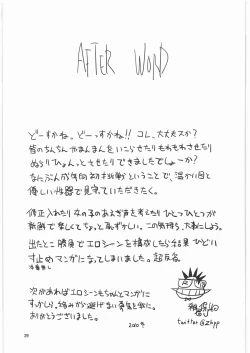 AFTER WORD
どーすかね。どーっすかね!! コレ、大丈夫スか?
皆のちんちんやまんまんをいこらせもわもわさせたり
ぬらりひょんっとさせたりできましたでしょーか?
なにぶん成年向初挑戦ということで、温かい目と
優しい性器で見守っていただきたく。
修正入れたり女の子のあえぎ声を考えたりひとつひとつが
新鮮で楽しくてちょっと恥ずかしい。この気持ち、大事にしよう。
出たとこ勝負でエロシーンを構成したら結果ひどい
寸止めマンガになってしまいました。超反省。
次があればエロシーンもちゃんとマンガに
すっかり、絡みから逃げない勇気を胸に
ありがとうございました。
2010年
twitter@zhpp
25